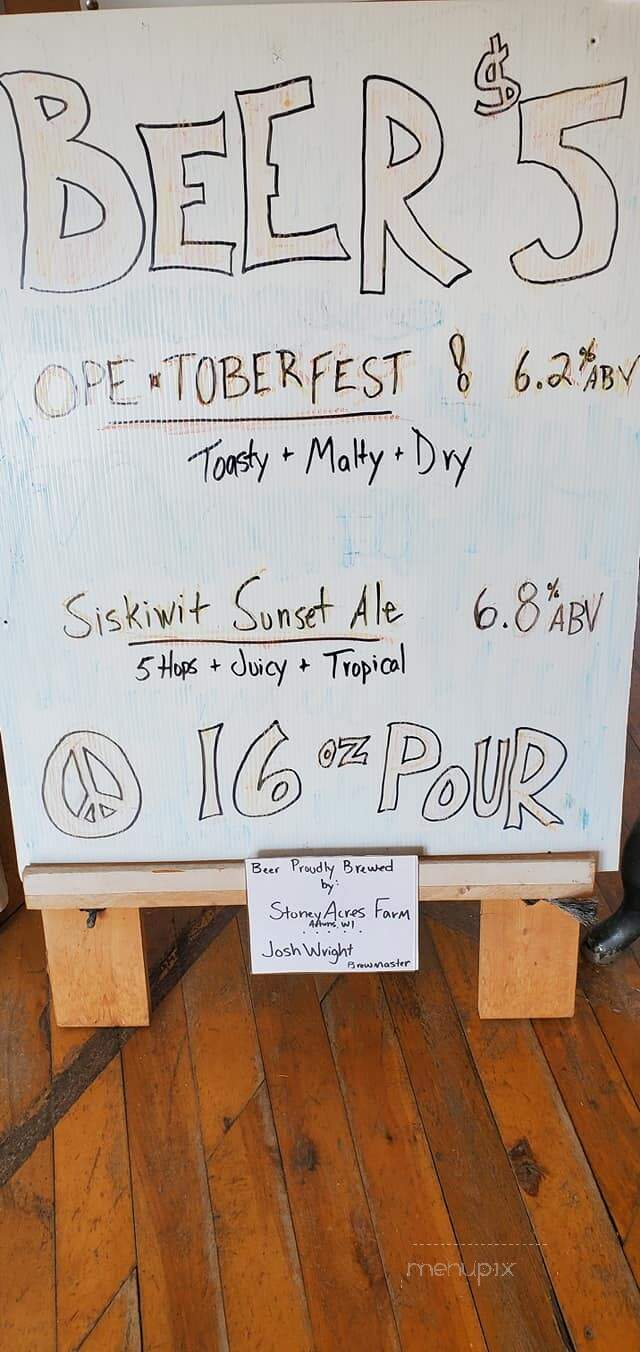 BEER $5
OPE-TOBERFEST ! 6.2% ABV
Toasty + Malty + Dry
Siskiwit Sunset Ale 6.8% ABV
5 Hops + Juicy + Tropical
16 oz POUR
Beer Proudly Brewed
by:
Stoney Acres Farm
WI
Josh Wright
Brewmaster
menupix